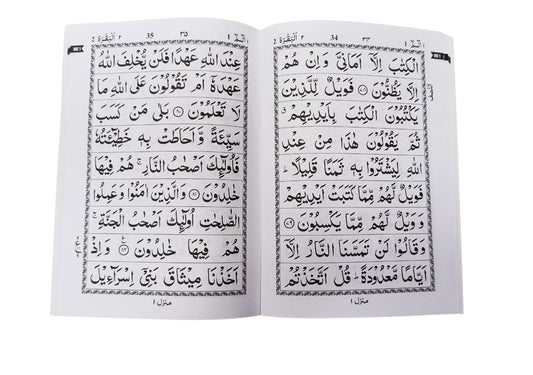 الٓمّٓ ١ ٣٤ 34 اَلْبَقَرَة ٢ 2
الْكِتٰبَ اِلَّاۤ اَمَانِیَّ وَاِنْ هُمْ
اِلَّا یَظُنُّوْنَ ﴿۷۸﴾ فَوَیْلٌ لِّلَّذِیْنَ
یَكْتُبُوْنَ الْكِتٰبَ بِاَیْدِیْهِمْ
ثُمَّ یَقُوْلُوْنَ هٰذَا مِنْ عِنْدِ
اللّٰهِ لِیَشْتَرُوْا بِهٖ ثَمَنًا قَلِیْلًا ؕ
فَوَیْلٌ لَّهُمْ مِّمَّا كَتَبَتْ اَیْدِیْهِمْ
وَ وَیْلٌ لَّهُمْ مِّمَّا یَكْسِبُوْنَ ﴿۷۹﴾
وَقَالُوْا لَنْ تَمَسَّنَا النَّارُ اِلَّاۤ
اَیَّامًا مَّعْدُوْدَةً ؕ قُلْ اَتَّخَذْتُمْ
منزل ١
الٓمّٓ ١ ٣٥ 35 اَلْبَقَرَة ٢ 2
عِنْدَ اللّٰهِ عَهْدًا فَلَنْ یُّخْلِفَ اللّٰهُ
عَهْدَهٗۤ اَمْ تَقُوْلُوْنَ عَلَی اللّٰهِ مَا
لَا تَعْلَمُوْنَ ﴿۸۰﴾ بَلٰی مَنْ كَسَبَ
سَیِّئَةً وَّ اَحَاطَتْ بِهٖ خَطِیْٓئَتُهٗ
فَاُولٰٓئِكَ اَصْحٰبُ النَّارِ ۚ هُمْ فِیْهَا
خٰلِدُوْنَ ﴿۸۱﴾ وَالَّذِیْنَ اٰمَنُوْا وَعَمِلُوا
الصّٰلِحٰتِ اُولٰٓئِكَ اَصْحٰبُ الْجَنَّةِ ۚ
هُمْ فِیْهَا خٰلِدُوْنَ ﴿۸۲﴾ وَاِذْ
اَخَذْنَا مِیْثَاقَ بَنِیْۤ اِسْرَآءِیْلَ
منزل ١